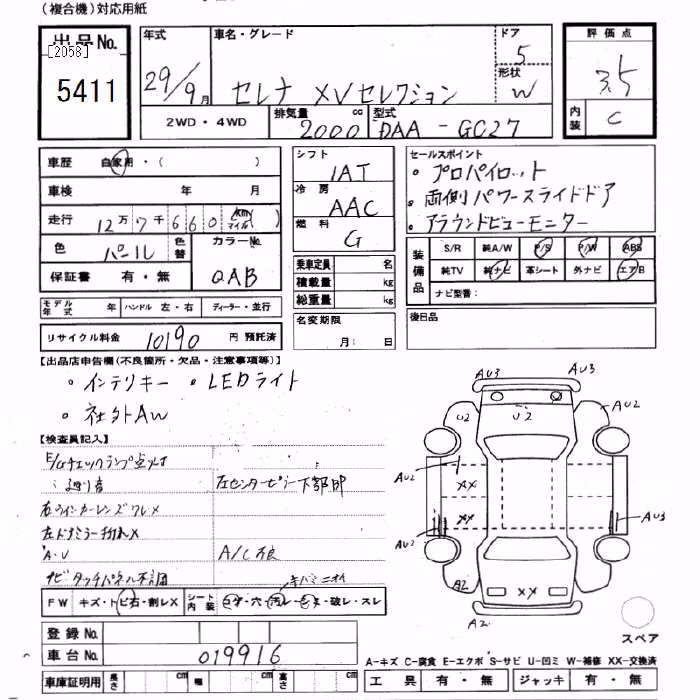 (複合機)対応用紙
出品No.
[2058]
5411
年式
29/9月
車名・グレード
セレナ XVセレクション
ドア
5
形状
W
評価点
3.5
内装
C
2WD・4WD
排気量
2000cc
型式
DAA-GC27
車歴 自家用・( )
車検 年 月
走行 12万7千660 km マイル( )
色 パール 色替
カラーNo.
QAB
保証書 有・無
シフト
IAT
冷房
AAC
燃料
G
乗車定員 名
積載量 kg
総重量 kg
名変期限
月: 日
セールスポイント
・プロパイロット
・両側パワースライドドア
・アラウンドビューモニター
装備品
S/R 純A/W P/S P/W ABS
純TV 純ナビ 革シート 外ナビ エアB
ナビ型番:
後日品
モデル年式 年 ハンドル 左・右 ディーラー・並行
リサイクル料金 10190 円 預託済
【出品店申告欄(不良箇所・欠品・注意事項等)】
・インテリキー ・LEDライト
・社外AW
【検査員記入】
E/Gチェックランプ点灯
右ウインカーレンズワレX
A・V
ナビタッチパネル不調
左センターピラー下部凹
A/C不良
キバミニオイ
FW キズ・トビ石・割レX
シート内装 コゲ・穴・汚レ・キズ・破レ・スレ
登録No.
車台No. 019916
車庫証明用 長さ cm 幅 cm 高さ cm
AU3 AU3
U2 U2 AU2
AU2 XX
XX AU3
AU2
A2 XX
A2
スペア
A-キズ C-腐食 E-エクボ S-サビ U-凹ミ W-補修 XX-交換済
工具 有・無 ジャッキ 有・無